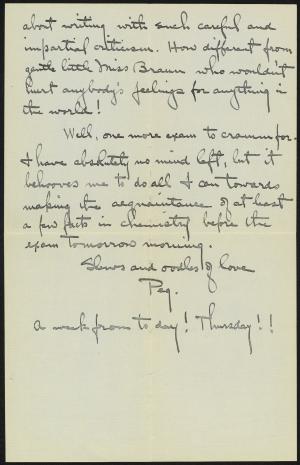 about writing with such careful and
impartial criticism. How different from
gentle little Miss Braun who wouldn't
hurt anybody's feelings for anything in
the world!
Well, one more exam to cram for.
I have absolutely no mind left, but it
behooves me to do all I can towards
making the acquaintance of at least
a few facts in chemistry before the
exam tomorrow morning.
Slews and oodles of love
Peg.
A week from to day! Thursday!!